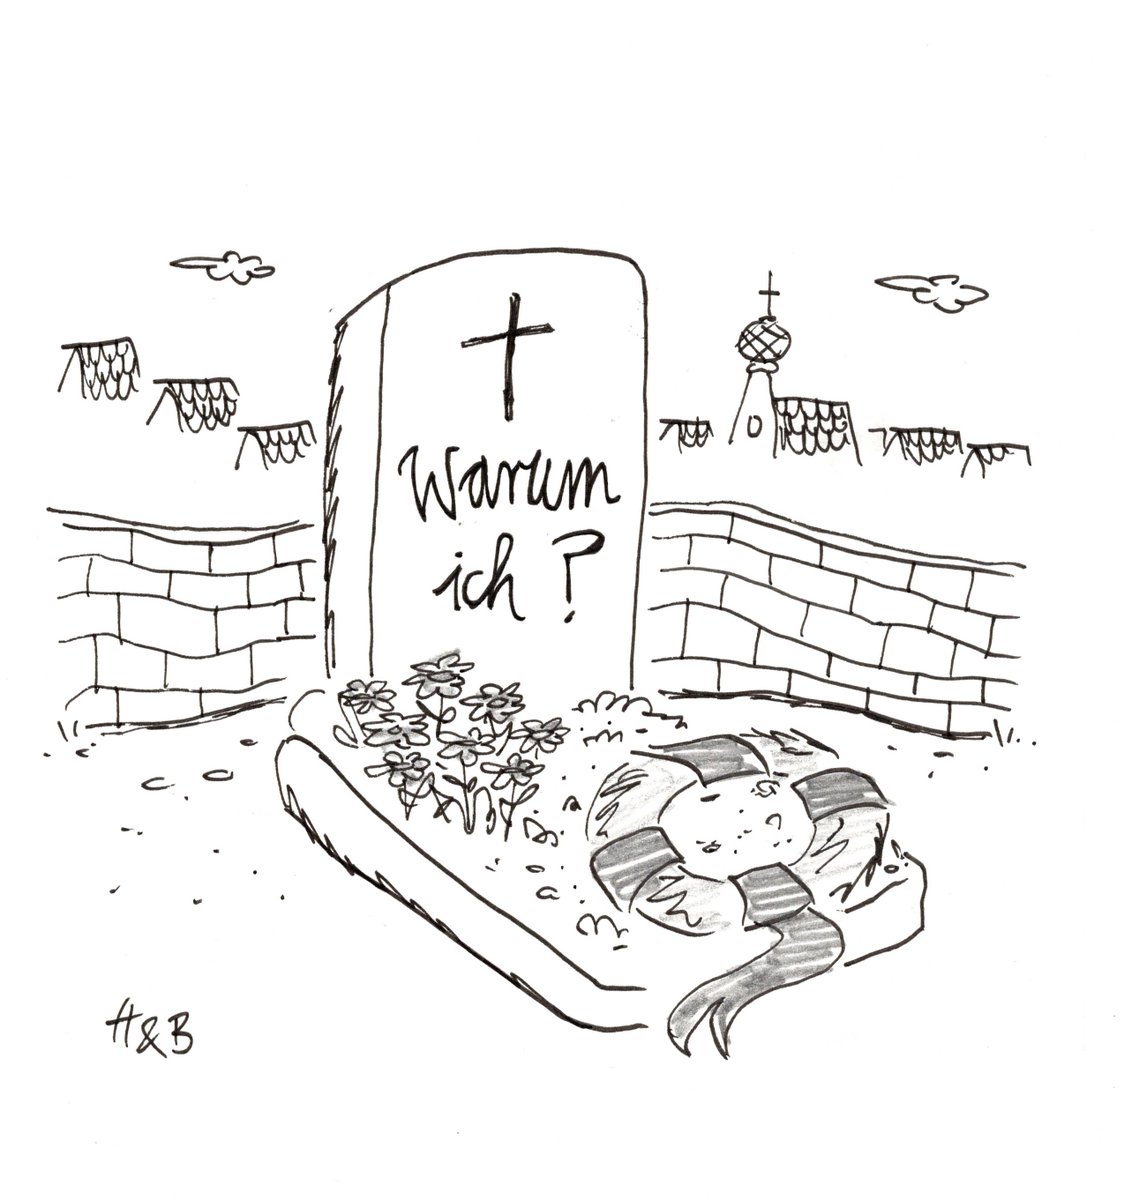 Warum
ich?
H&B